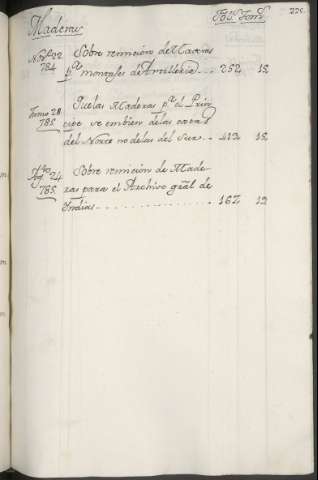 Maderas
Fos. Toms.
Novre. 22 784 Sobre remision de Maderas
ps. montajes de Artilleria . . . 252 12
Junio 28 785 Que las Maderas pa. el
se embien de las
del Norte no de las del Sur . . 412 12
24 785 Sobre remision de Made-
ras para el Archivo gral de
Indias . . . . . . . . . . 162 12